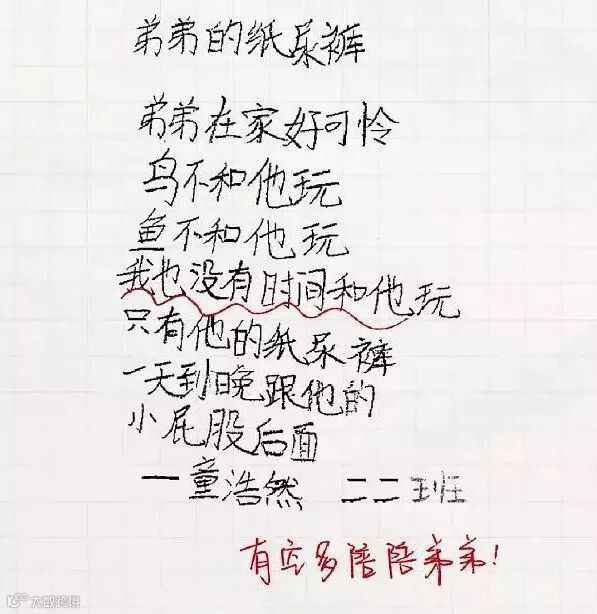 弟弟的纸尿裤
弟弟在家好可怜
鸟不和他玩
鱼不和他玩
我也没有时间和他玩
只有他的纸尿裤
一天到晚跟他的
小屁股后面
一童浩然 二二班
有空多陪陪弟弟!
大数跨境